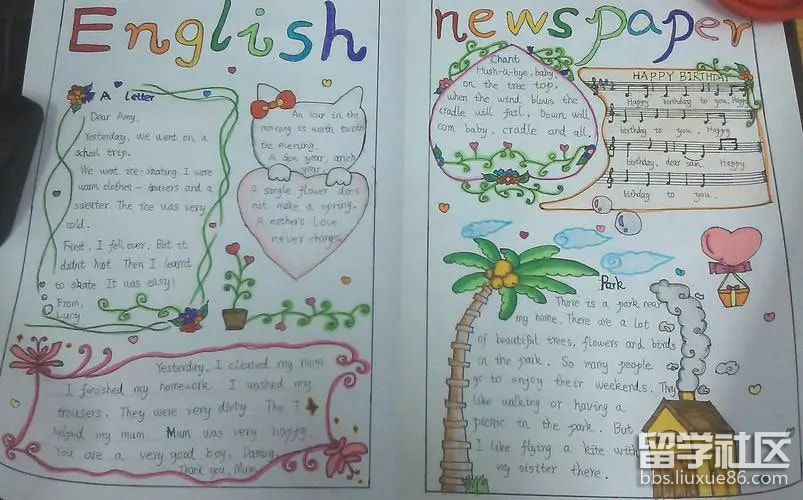 English
newspaper
A Letter
Dear Amy,
Yesterday, we went on a
school trip.
We went ice-skating. I were
warm clothes – trousers and a
sweater. The ice was very
cold.
First, I fell over. But it
didn't hurt. Then I learnt
to skate. It was easy!
From,
Lucy
An hour in the
morning is worth two in
the evening.
year,
year.
A single flower does
not make a spring.
A mother's love
never changs
Yesterday, I cleaned my room
I finished my homework. I washed my
trousers. They were very dirty. The I
helped my mum. Mum was very happy.
You are a very good boy, Daming.
Thank you, Mum
Chant
Hush-a-bye, baby,
on the tree top,
when the wind blows the
cradle will fall. Down will
com baby, cradle and all.
HAPPY BIRTHDAY
Happy birthday to you, Happy
birthday to you. Happy
birthday, dear sam, Happy
birthday to you.
Park
There is a park near
my home. There are a lot
of beautiful trees, flowers and birds
in the park. So many people
go to enjoy their weekends. They
like walking or having a
picnic in the park. But
I like flying a kite with
my sisiter there.
留学社区
bbs.liuxue86.com